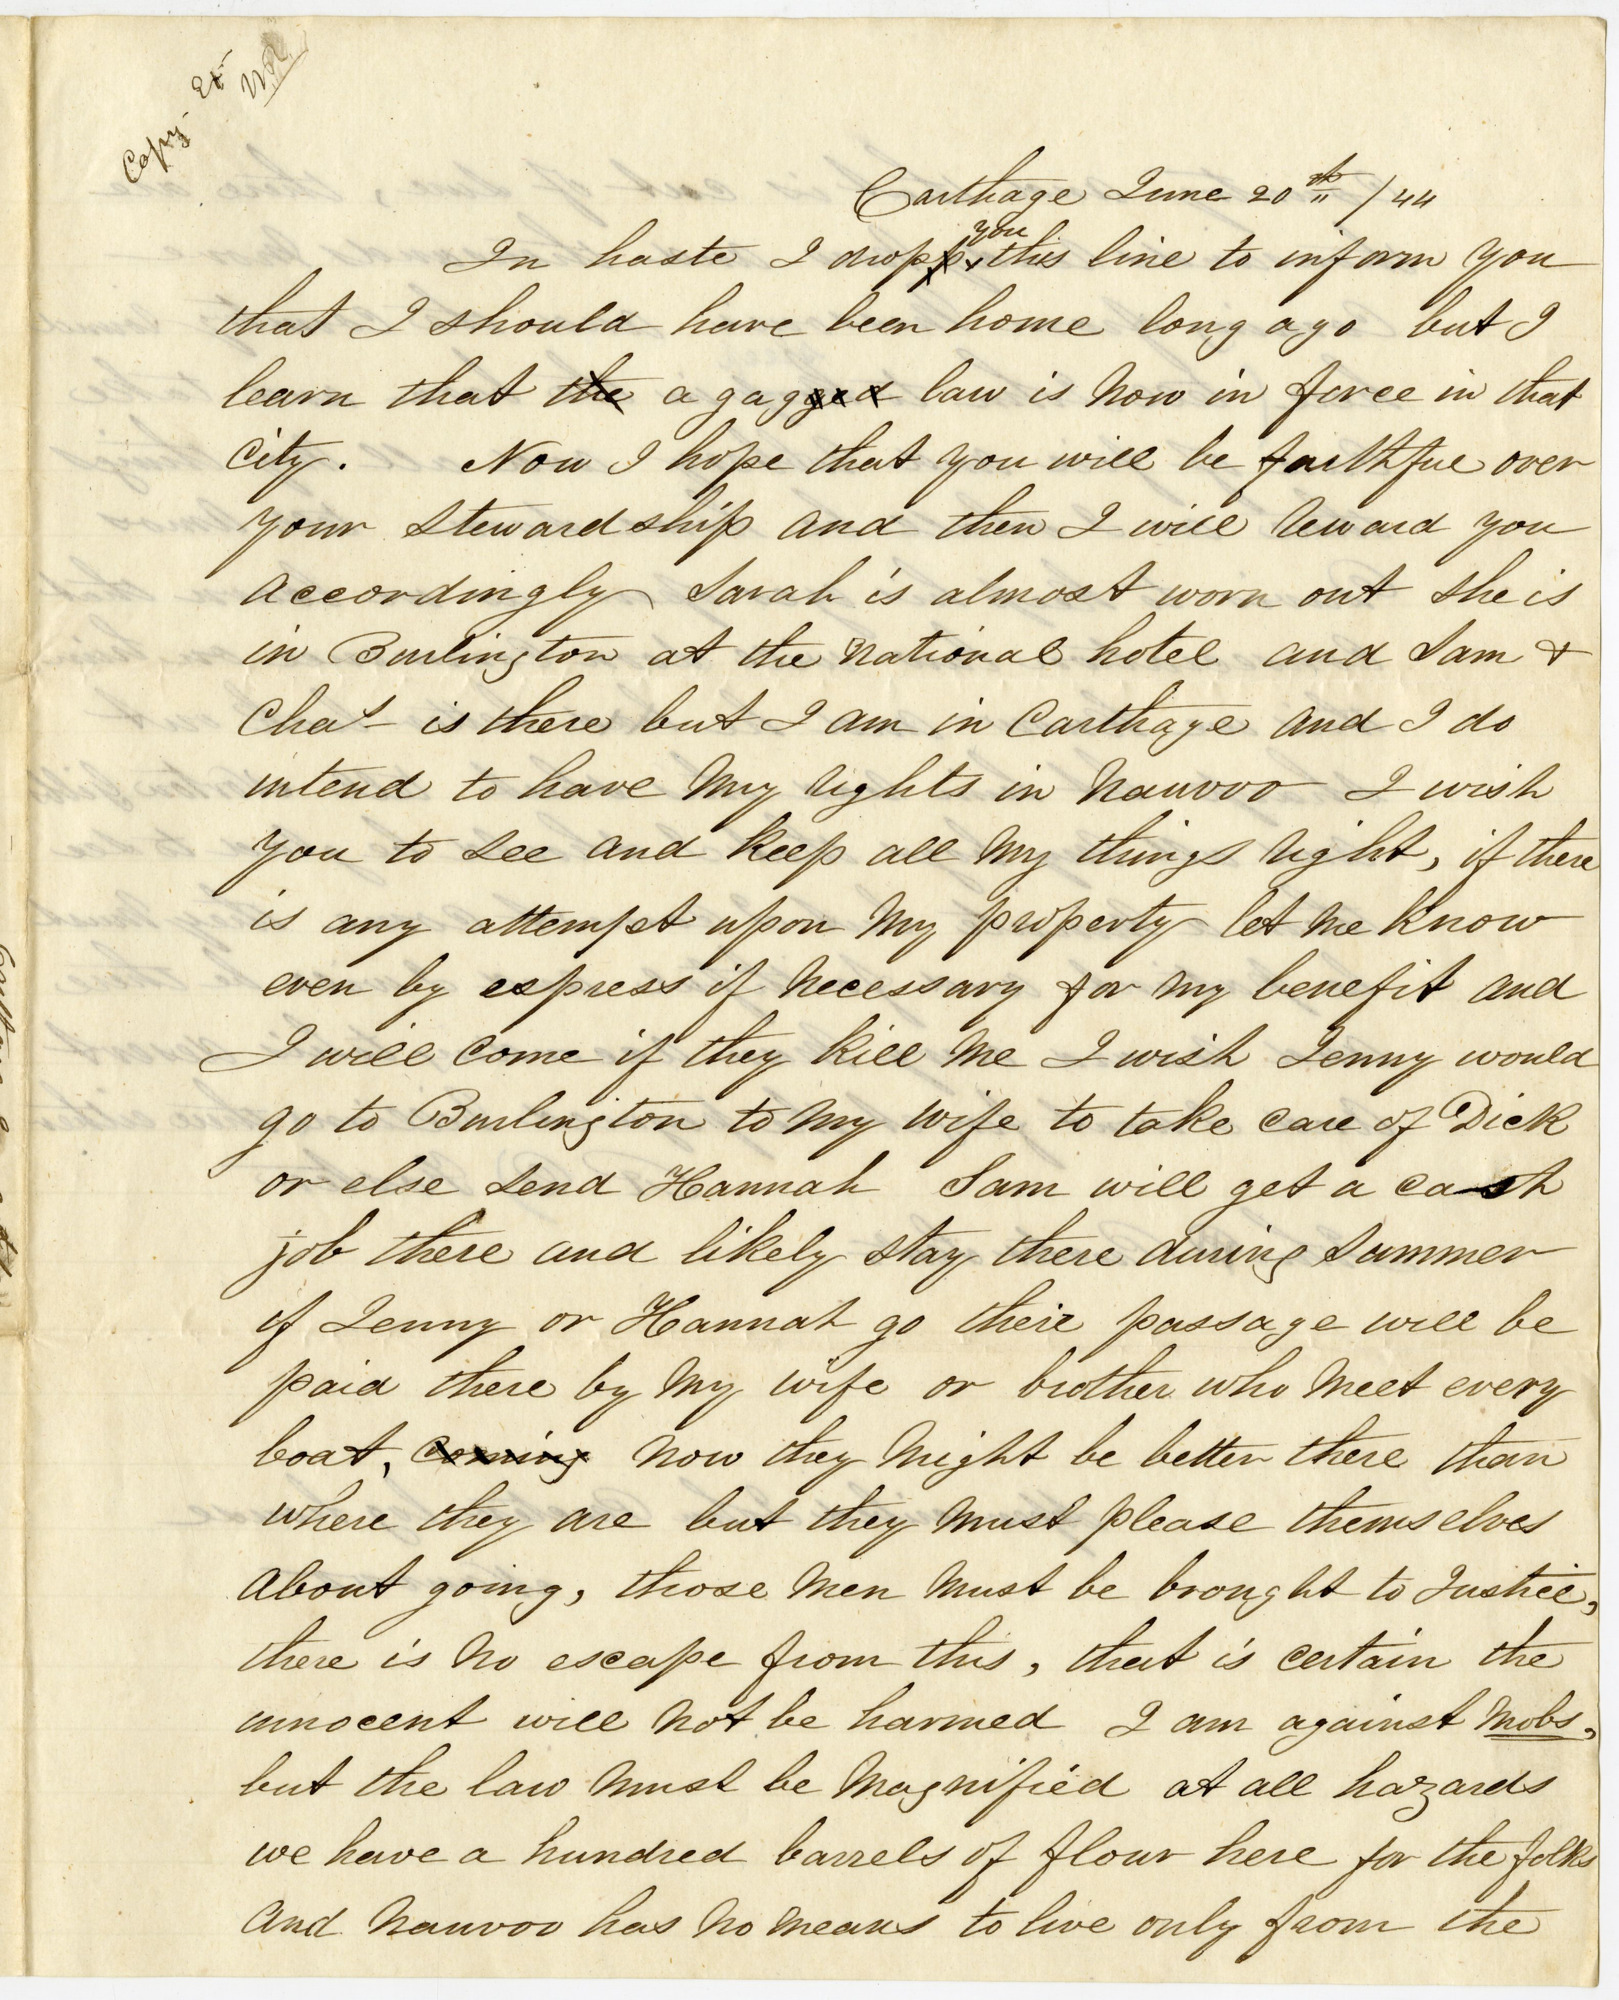 Copy- Ex-
Carthage June 20th /44
In haste I dropp you this line to inform you
that I should have been home long ago but I
learn that the a gagged law is now in force in that
City. Now I hope that you will be faithful over
your stewardship and then I will reward you
accordingly Sarah is almost worn out she is
in Burlington at the National hotel and Sam &
Chas is there but I am in Carthage and I do
intend to have my rights in Nauvoo I wish
you to see and keep all my things right, if there
is any attempt upon my property let me know
even by express if necessary for my benefit and
I will come if they kill me I wish Jenny would
go to Burlington to my wife to take care of Dick
or else send Hannah Sam will get a cash
job there and likely stay there during summer
if Jenny or Hannah go their passage will be
paid there by my wife or brother who meet every
boat, coming now they might be better there than
where they are but they must please themselves
about going, those men must be brought to Justice,
there is no escape from this, that is certain the
innocent will not be harmed I am against mobs,
but the law must be magnified at all hazards
we have a hundred barrels of flour here for the folks
and Nauvoo has no means to live only from the